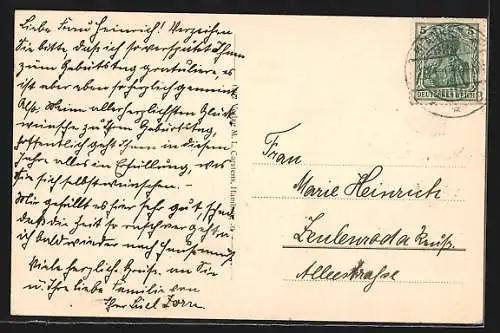 Liebe Frau Heinrich! Verzeihen
Sie bitte, daß ich so verspätet Ihnen
zum Geburtstag gratuliere, es
ist aber eben so herzlich gemeint.
Also: Meine allerherzlichsten Glück-
wünsche zu Ihrem Geburtstag,
hoffentlich geht Ihnen in diesem
Jahre alles in Erfüllung, was
Sie sich selbst wünschen. –
Mir gefällt es hier sehr gut, schade
daß die Zeit so schnell vergeht u.
ich bald wieder nach
Viele herzliche Grüße an Sie
u. Ihre liebe Familie von
Zorn
Verlag M. L. Carstens, Hamburg
5 5
DEUTSCHES REICH
Frau
Marie Heinrich
Zeulenroda Reuß.
Alleestrasse